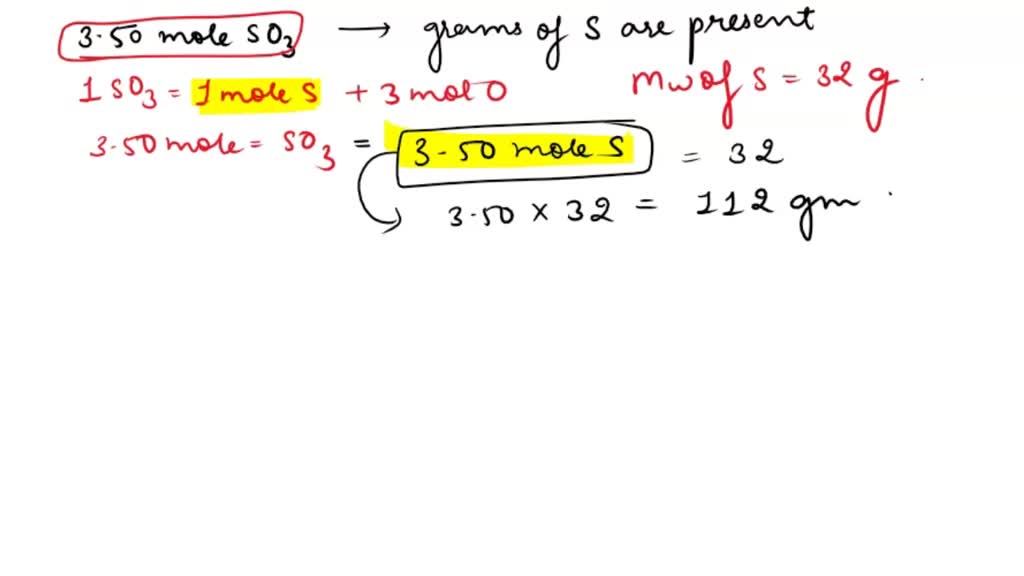 3.50 mole SO3 → grams of S are present
1 SO3 = 1 mole S + 3 mol O   mw of S = 32 g.
3.50 mole = SO3 = 3-50 mole S = 32
3.50 × 32 = 112 gm.